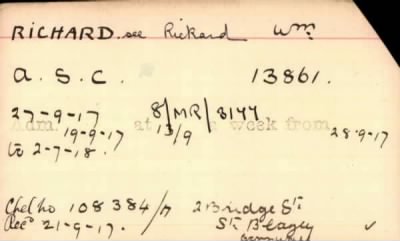 RICHARD. see Rickard Wm.
A. S. C. 13861.
27-9-17 8/MR/8177
Adm. at week from
19-9-17 13/9 28-9-17
to 2-7-18.
Chel No 108384/ 2 Bridge St.
Rec'd 21-9-17. St. Blazey